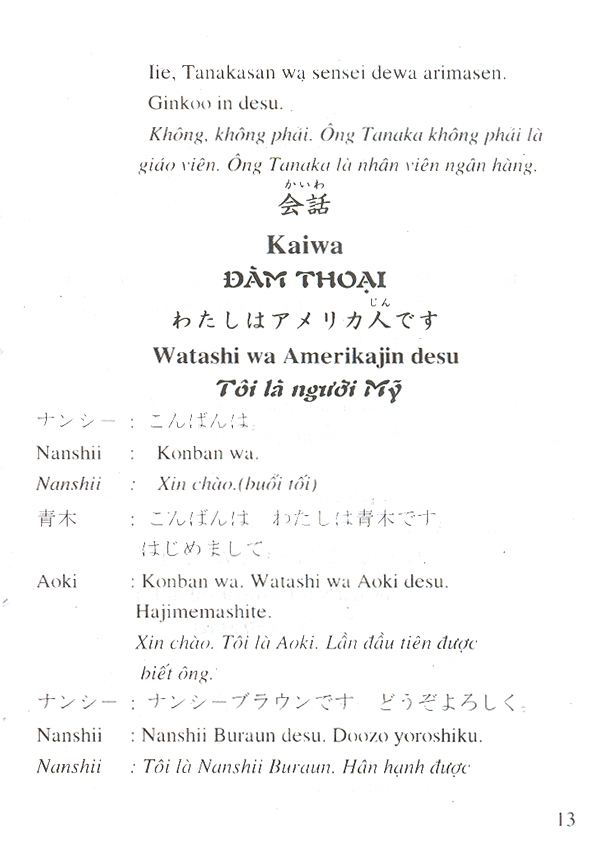 Iie, Tanakasan wa sensei dewa arimasen.
Ginkoo in desu.
Không, không phải. Ông Tanaka không phải là
giáo viên. Ông Tanaka là nhân viên ngân hàng.
かいわ
会話
Kaiwa
ĐÀM THOẠI
じん
わたしはアメリカ人です
Watashi wa Amerikajin desu
Tôi là người Mỹ
ナンシー : こんばんは。
Nanshii : Konban wa.
Nanshii : Xin chào.(buổi tối)
青木 : こんばんは わたしは青木です
はじめまして。
Aoki : Konban wa. Watashi wa Aoki desu.
Hajimemashite.
Xin chào. Tôi là Aoki. Lần đầu tiên được
biết ông.
ナンシー : ナンシーブラウンです どうぞよろしく。
Nanshii : Nanshii Buraun desu. Doozo yoroshiku.
Nanshii : Tôi là Nanshii Buraun. Hân hạnh được
13